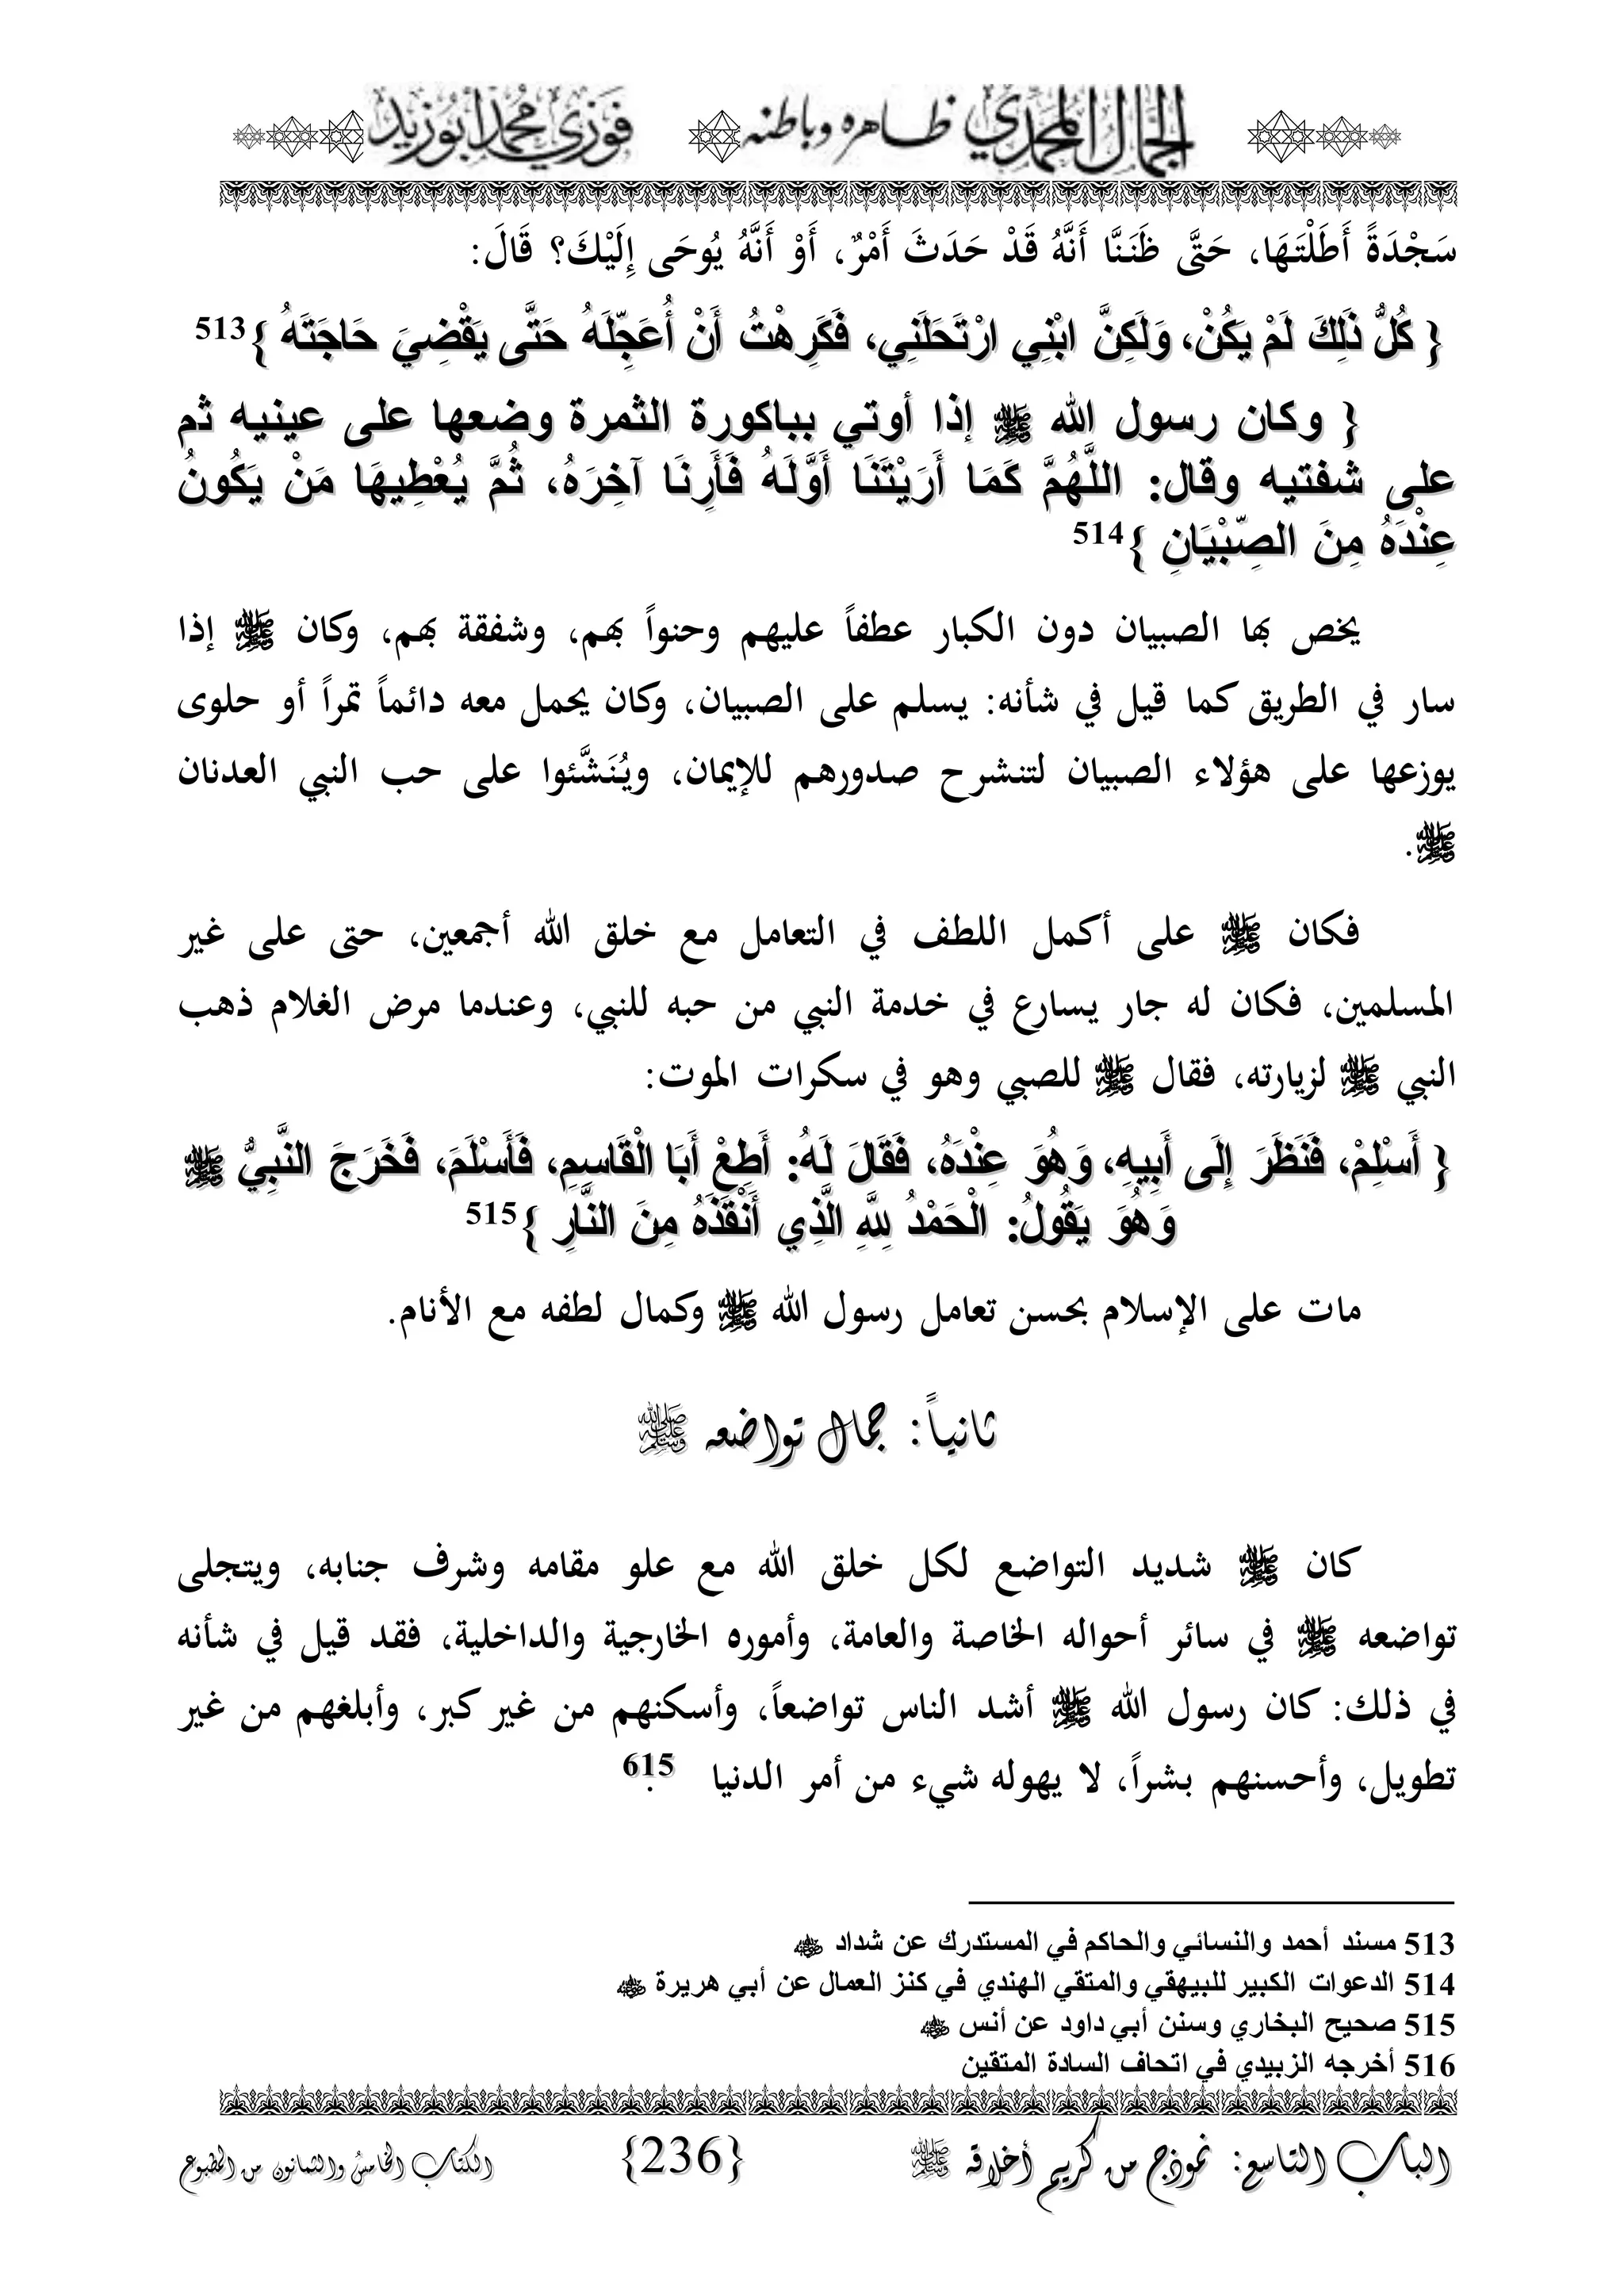 الجمال المحمدي ظاهره وباطنه فوزي محمد أبوزيد
سَجْدَةً أَطَلْتَهَا، حَتَّى ظَنَنَّا أَنَّهُ قَدْ حَدَثَ أَمْرٌ، أَوْ أَنَّهُ يُوحَى إِلَيْكَ؟ قَالَ:
{ كُلُّ ذَلِكَ لَمْ يَكُنْ، وَلَكِنَّ ابْنِي ارْتَحَلَنِي، فَكَرِهْتُ أَنْ أُعَجِّلَهُ حَتَّى يَقْضِيَ حَاجَتَهُ }513
{ وكان رسول الله ﷺ إذا أوتي بباكورة الثمرة وضعها على عينيه ثم
على شفتيه وقال: اللَّهُمَّ كَمَا أَرَيْتَنَا أَوَّلَهُ فَأَرِنَا آخِرَهُ، ثُمَّ يُعْطِيهَا مَنْ يَكُونُ
عِنْدَهُ مِنَ الصِّبْيَانِ }514
يخص بها الصبيان دون الكبار عطفاً عليهم وحنواً بهم، وشفقة بهم، وكان ﷺ إذا
سار في الطريق كما قيل في شأنه: يسلم على الصبيان، وكان يحمل معه دائماً تمراً أو حلوى
يوزعها على هؤلاء الصبيان لتنشرح صدورهم للإيمان، ويُنَشَّئوا على حب النبي العدنان
ﷺ.
فكان ﷺ على أكمل اللطف في التعامل مع خلق الله أجمعين، حتى على غير
المسلمين، فكان له جار يسارع في خدمة النبي من حبه للنبي، وعندما مرض الغلام ذهب
النبي ﷺ لزيارته، فقال ﷺ للصبي وهو في سكرات الموت:
{ أَسْلِمْ، فَنَظَرَ إِلَى أَبِيهِ، وَهُوَ عِنْدَهُ، فَقَالَ لَهُ: أَطِعْ أَبَا الْقَاسِمِ، فَأَسْلَمَ، فَخَرَجَ النَّبِيُّ ﷺ
وَهُوَ يَقُولُ: الْحَمْدُ لِلَّهِ الَّذِي أَنْقَذَهُ مِنَ النَّارِ }515
مات على الإسلام بحسن تعامل رسول الله ﷺ وكمال لطفه مع الأنام.
ثانياً: جمال تواضعه ﷺ
كان ﷺ شديد التواضع لكل خلق الله مع علو مقامه وشرف جنابه، ويتجلى
تواضعه ﷺ في سائر أحواله الخاصة والعامة، وأموره الخارجية والداخلية، فقد قيل في شأنه
في ذلك: كان رسول الله ﷺ أشد الناس تواضعاً، وأسكنهم من غير كبر، وأبلغهم من غير
تطويل، وأحسنهم بشراً، لا يهوله شيء من أمر الدنيا 615.
513 مسند أحمد والنسائي والحاكم في المستدرك عن شداد
514 الدعوات الكبير للبيهقي والمتقي الهندي في كنز العمال عن أبي هريرة
515 صحيح البخاري وسنن أبي داود عن أنس
516 أخرجه الزبيدي في اتحاف السادة المتقين
الباب التاسع: نموذج من كريم أخلاقه ﷺ {236} الكتاب الخامس والثمانون من المطبوع